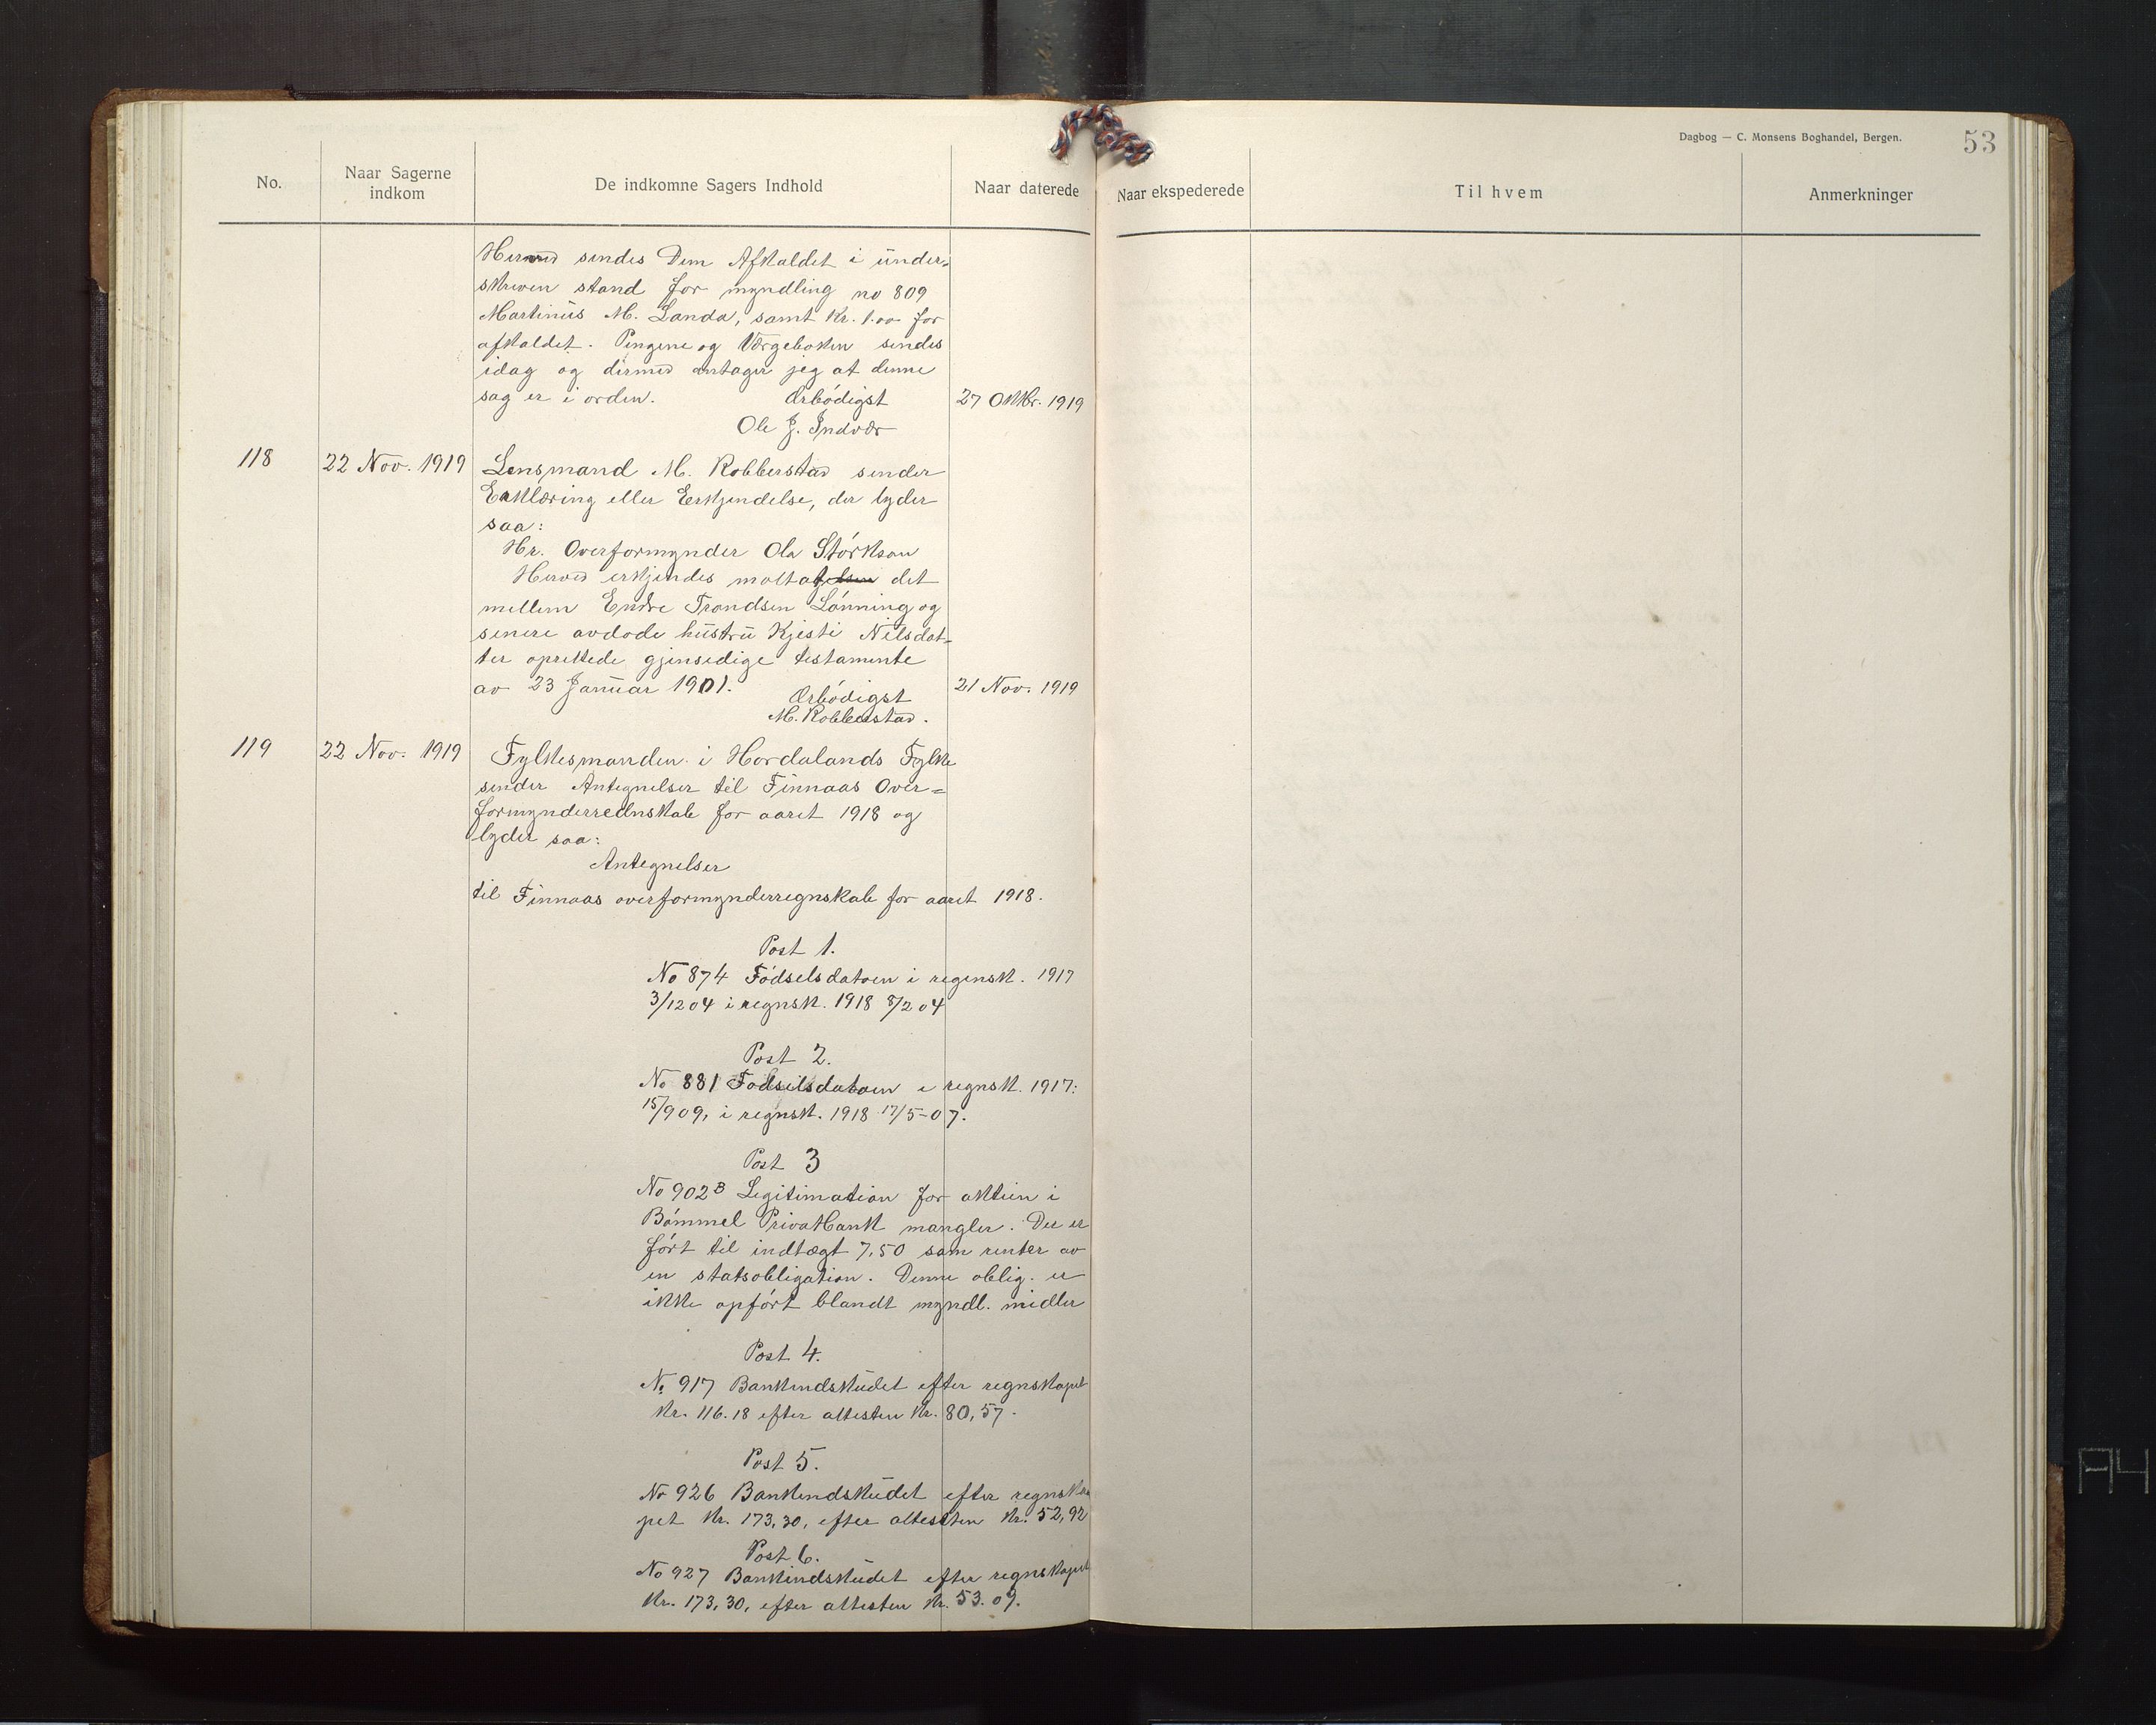 Dagbog — C. Monsens Boghandel, Bergen.
53
No.
Naar Sagerne
indkom
De indkomne Sagers Indhold
Naar daterede
Naar ekspederede
Til hvem
Anmerkninger
Hermed sendes Dem Afkaldet i under-
skreven stand for myndling no 809
Martinus M. Landa, samt Kr. 1.00 for
afkaldet. Pengene og Værgeboken sendes
idag og dermed antager jeg at denne
sag er i orden. Ærbödigst 27 Oktbr. 1919
Ole J. Indvær
118 22 Nov. 1919 Lensmand M. Robberstad sender
Erklæring eller Eerkjendelse, der lyder
saa:
Hr. Overformynder Ola Störkson
Herved erkjendes mottat det
mellem Endre Trondsen Lönning og
senere avdode hustru Kjesti Nilsdat-
ter oprettede gjensedige testamente
av 23 Januar 1901. 21 Nov. 1919
Ærbödigst
M. Robberstad.
119 22 Nov. 1919 Fylkesmanden i Hordalands Fylke
sender Antegnelser til Finnaas Over=
formynderrednskab for aaret 1918 og
lyder saa:
Antegnelser
til Finnaas overformynderregnskab for aaret 1918.
Post 1.
No 874 Födselsdatoen i regensk. 1917
3/12 04 i regnsk. 1918 8/2 04
Post 2.
No 881 Fodselsdatoen i regnsk. 1917:
15/9 09, i regnsk. 1918 17/5-07.
Post 3
No 902 B Legitimation for aktien i
Bömmel Privatbank mangler. Der er
fört til indtægt 7,50 som renter av
en statsobligation. Denne oblig. er
ikke opfört blandt myndl. midler
Post 4.
No 917 Bankindskudet efter regnskapet
Kr. 116.18 efter attesten Kr. 80,57.
Post 5.
No 926 Bankendskudet efter regnska
pet Kr. 173,30, efter attesten Kr. 52,92
Post 6.
No 927 Bankindskudet efter regnskapet
Kr. 173,30, efter attesten Kr. 53.09.
A4